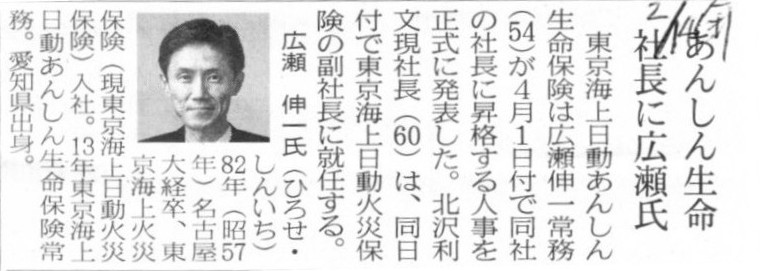 2/14(木)
あんしん生命
社長に広瀬氏
東京海上日動あんしん
生命保険は広瀬伸一常務
(54)が4月1日付で同社
の社長に昇格する人事を
正式に発表した。北沢利
文現社長(60)は、同日
付で東京海上日動火災保
険の副社長に就任する。
広瀬 伸一氏(ひろせ・
しんいち)
82年(昭57
年)名古屋
大経卒、東
京海上火災
保険(現東京海上日動火災
保険)入社。13年東京海上
日動あんしん生命保険常
務。愛知県出身。